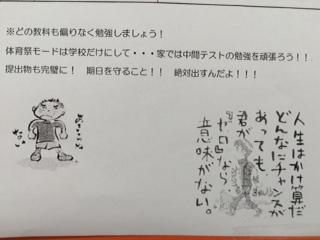 ※どの教科も偏りなく勉強しましょう！
体育祭モードは学校だけにして・・・家では中間テストの勉強を頑張ろう！！
提出物も完璧に！　期日を守ること！！　絶対出すんだよ！！！
人生はかけ算だ
どんなにチャンスが
あっても
君が
『ゼロ』なら
意味がない。